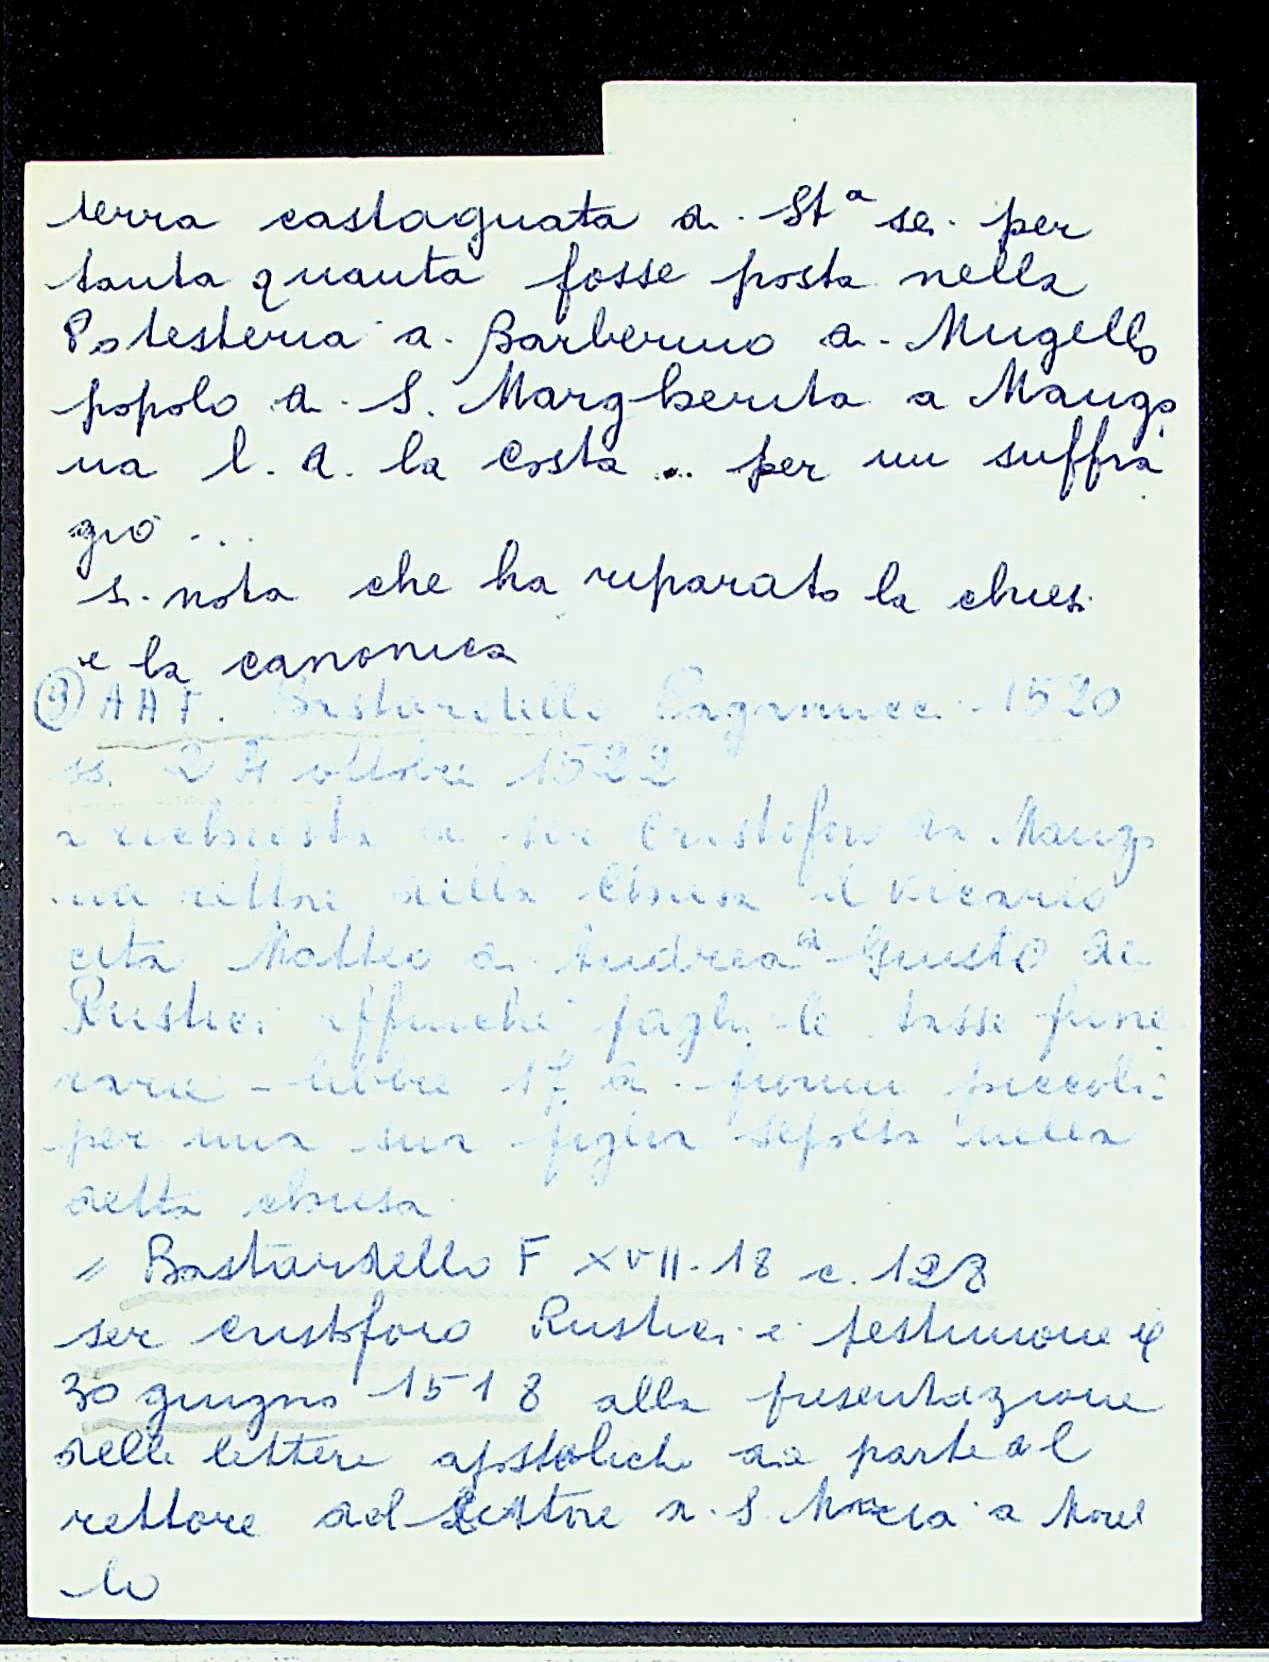 terra castagnata di Stª se. per
tanta quanta fosse posta nella
Potesteria di Barberino di Mugello
popolo di S. Margherita a Mango
na l. d. la Costa ... per un suffra
gio ...
si nota che ha riparato la chiesa
e la canonica
③ AAF. Bastardelli Paganucci 1520
ss. 24 ottobre 1522
a richiesta di ser Cristoforo da Mango
na rettore della Chiesa il vicario
cita Matteo di Andrea di Giusto de
Rustici affinché paghi le tasse fune
rarie - libbre 17 di fiorini piccoli:
per una sua figlia sepolta nella
detta chiesa
" Bastardello F XVII-18 c. 128
ser Cristoforo Rustici è testimone il
30 giugno 1518 alla presentazione
delle lettere apostoliche da parte del
rettore del Rettore di S. Maria a Morel
lo